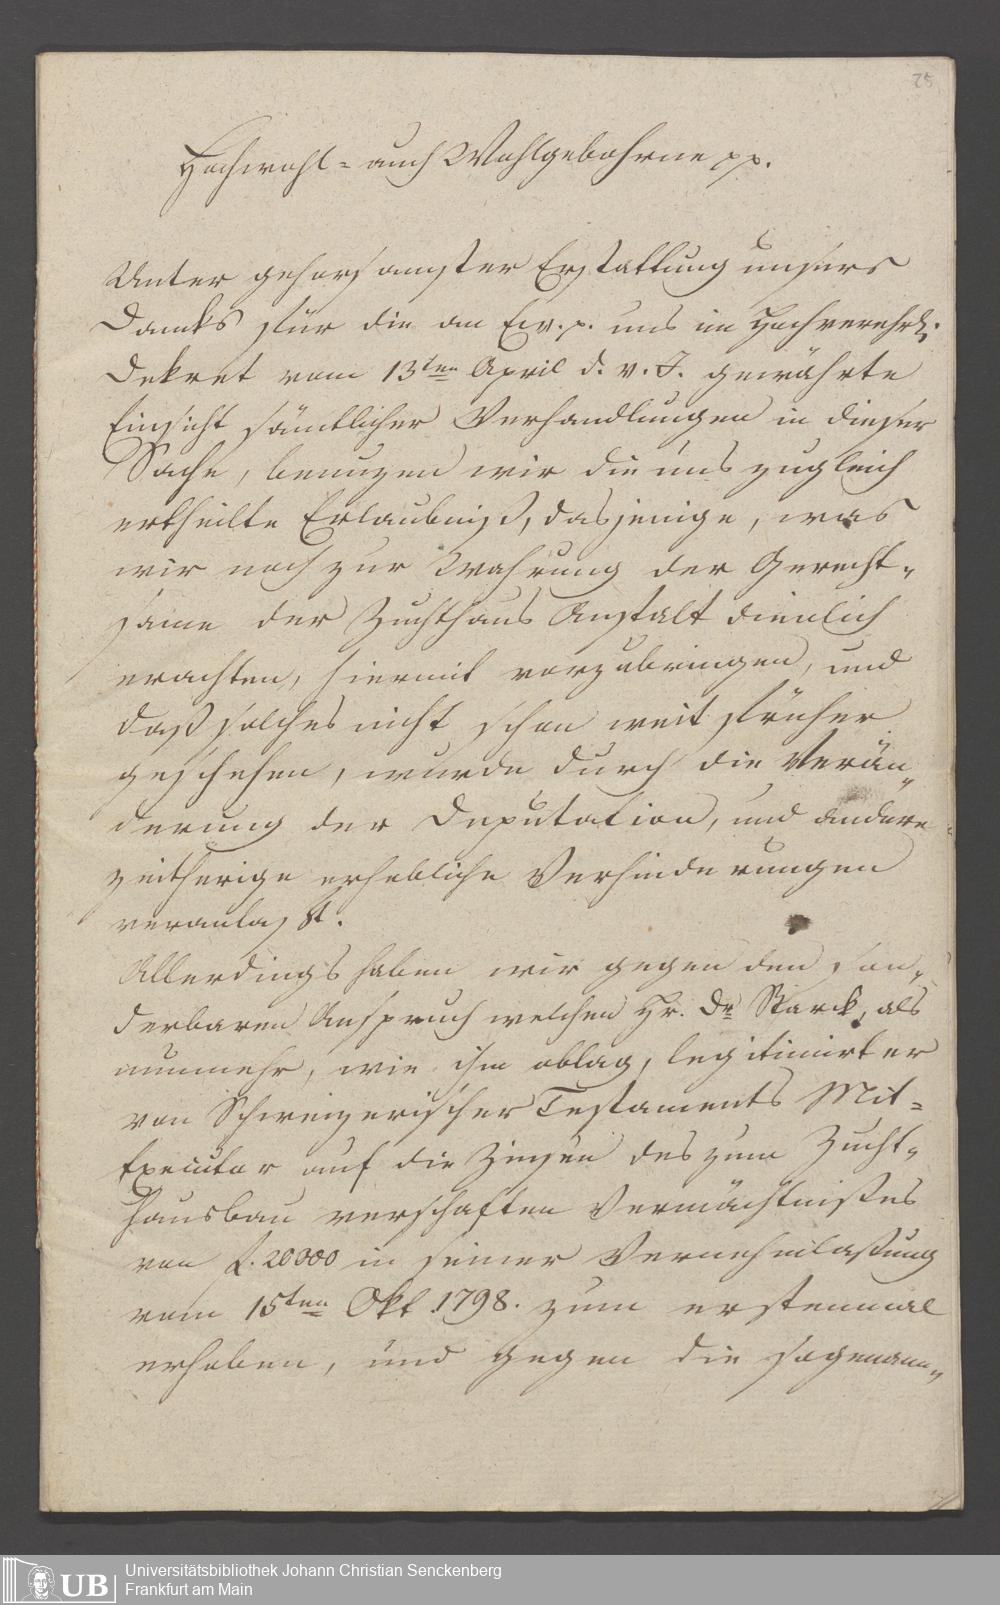 25
Hochwohl- auch Wohlgebohrne pp.
Unter gehorsamster Erstattung unsers
Danks für die von Ew. p. uns im Hochverehrl.
Dekret vom 13ten April d. v. J. gewährte
Einsicht sämtlicher Verhandlungen in dieser
Sache, benuzen wir die uns zugleich
ertheilte Erlaubniß, dasjenige, was
wir noch zur Wahrung der Gerecht-
same der Zuchthaus Anstalt dienlich
erachten, hiermit vorzubringen, und
daß solches nicht schon weit früher
geschehen, wurde durch die Verän-
derung der Deputation, und andere
zeitherige erhebliche Verhinderungen
veranlaßt.
Allerdings haben wir gegen den son-
derbaren Anspruch welchen Hr. Dr Starck, als
nunmehr, wie ihm oblag, legitimirter
von Schweizerischer Testaments Mit-
Executor auf die Zinsen des zum Zucht-
hausbau verschaften Vermächtnißes
von f. 20000 in seiner Vernehmlaßung
vom 15ten Okt 1798. zum erstenmal
erhoben, und gegen die sogenann-
UB
Universitätsbibliothek Johann Christian Senckenberg
Frankfurt am Main